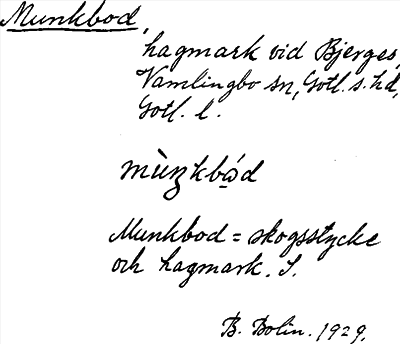 Munkbod,
hagmark vid Bjerges,
Vamlingbo sn, Gotl. s. hd,
Gotl. l.
mùŋkbo̱d
Munkbod = skogsstycke
och hagmark. S.
B. Bolin. 1929.